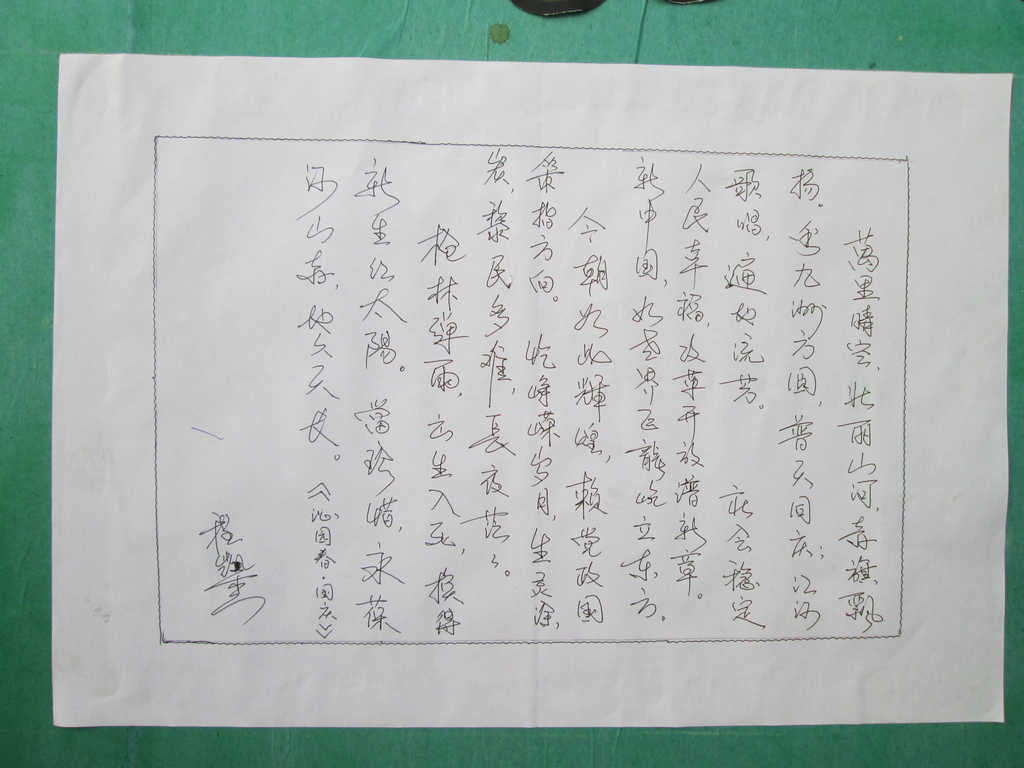 萬里晴空，壯丽山河，赤旗飘
扬。看九洲方圆，普天同庆；江河
歌唱，遍地流芳。社会稳定
人民幸福，改革开放谱新章。
新中国，如世界巨龍屹立东方。
今朝如此輝煌，賴党政国
策指方向。忆峥嵘岁月，生灵涂
炭，黎民多难，長夜茫々。
枪林弹雨，出生入死，换得
新生红太陽。當珍惜，永葆
河山春，地久天长。《沁园春·国庆》
程